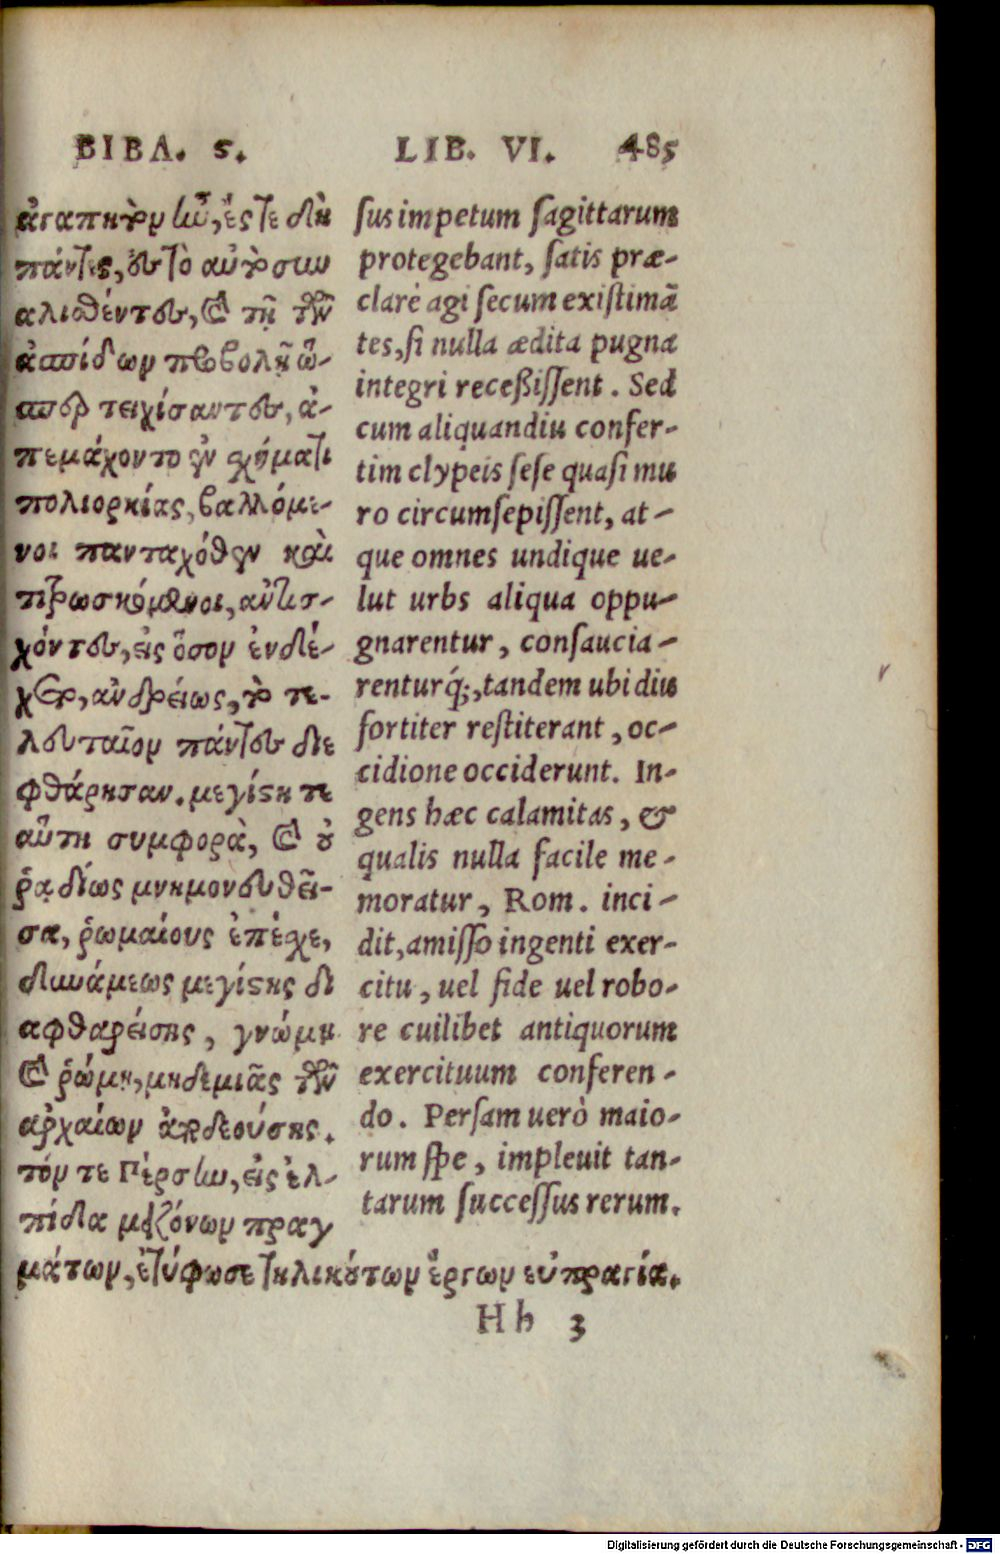 ΒΙΒΛ. ς. LIB. VI. 485
ἀγαπητὸν ἦν, ἔς τε δὴ
πάντες, ἐς τὸ αὐτὸ συν
αλισθέντες, καὶ τῇ τῶν
ἀσπίδων προβολῇ ὥ-
σπερ τειχίσαντες, ἀ-
πεμάχοντο ἐν σχήματι
πολιορκίας, βαλλόμε-
νοι πανταχόθεν καὶ
τιτρωσκόμενοι, ἀντισ-
χόντες, εἰς ὅσον ἐνδέ-
χεται, ἀνδρείως, τὸ τε-
λευταῖον πάντες διε
φθάρησαν. μεγίστη τε
αὕτη συμφορὰ, καὶ οὐ
ῥᾳδίως μνημονευθεῖ-
σα, ῥωμαίους ἐπέσχε,
δυνάμεως μεγίστης δι
αφθαρείσης, γνώμῃ
καὶ ῥώμῃ, μηδεμιᾶς τῶν
ἀρχαίων ἀποδεούσης.
τόν τε Πέρσην, εἰς ἐλ-
πίδα μειζόνων πραγ
μάτων, ἐτύφωσε τηλικούτων ἔργων εὐπραγία.
sus impetum sagittarum
protegebant, satis præ-
clarè agi secum existimã
tes, si nulla ædita pugna
integri receßissent. Sed
cum aliquandiu confer-
tim clypeis sese quasi mu
ro circumsepissent, at-
que omnes undique ue-
lut urbs aliqua oppu-
gnarentur, consaucia-
renturq́;, tandem ubi diu
fortiter restiterant, oc-
cidione occiderunt. In-
gens hæc calamitas, &
qualis nulla facile me-
moratur, Rom. inci-
dit, amisso ingenti exer-
citu, uel fide uel robo-
re cuilibet antiquorum
exercituum conferen-
do. Persam uerò maio-
rum spe, impleuit tan-
tarum successus rerum.
Hh 3
Digitalisierung gefördert durch die Deutsche Forschungsgemeinschaft - DFG